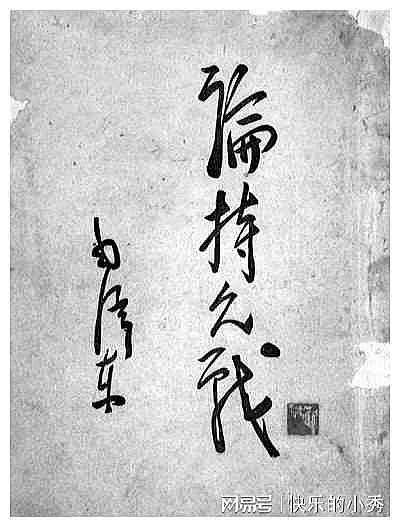 論持久戰
毛澤东
网易号 | 快乐的小秀